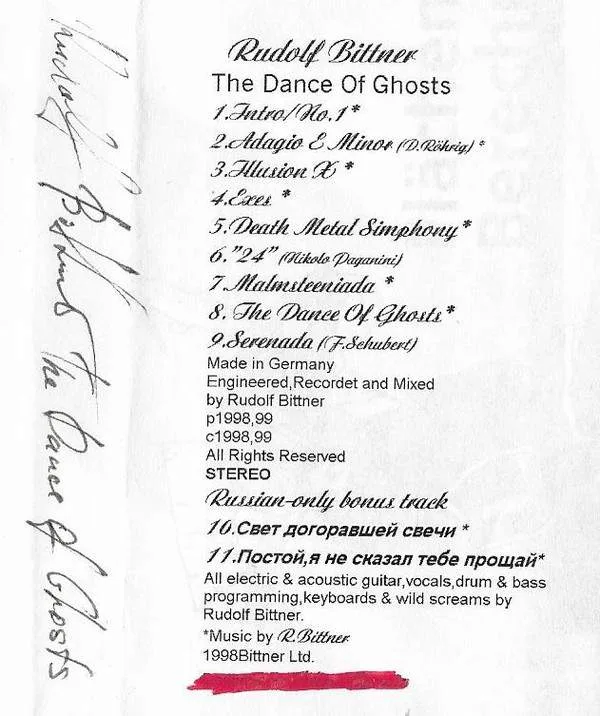 Rudolf Bittner
The Dance Of Ghosts
1.Intro/No.1*
2.Adagio E Minor (D.Röhrig) *
3.Illusion X *
4.Exes *
5.Death Metal Simphony *
6."24" (Nikolo Paganini)
7.Malmsteeniada *
8. The Dance Of Ghosts*
9.Serenada (F.Schubert)
Made in Germany
Engineered,Recordet and Mixed
by Rudolf Bittner
p1998,99
c1998,99
All Rights Reserved
STEREO
Russian-only bonus track
10.Свет догоравшей свечи *
11.Постой,я не сказал тебе прощай*
All electric & acoustic guitar,vocals,drum & bass
programming,keyboards & wild screams by
Rudolf Bittner.
*Music by R.Bittner
1998Bittner Ltd.
Rudolf The Dance of Ghosts